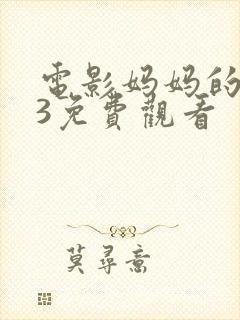 電影妈妈的
3免費觀看
莫尋啻